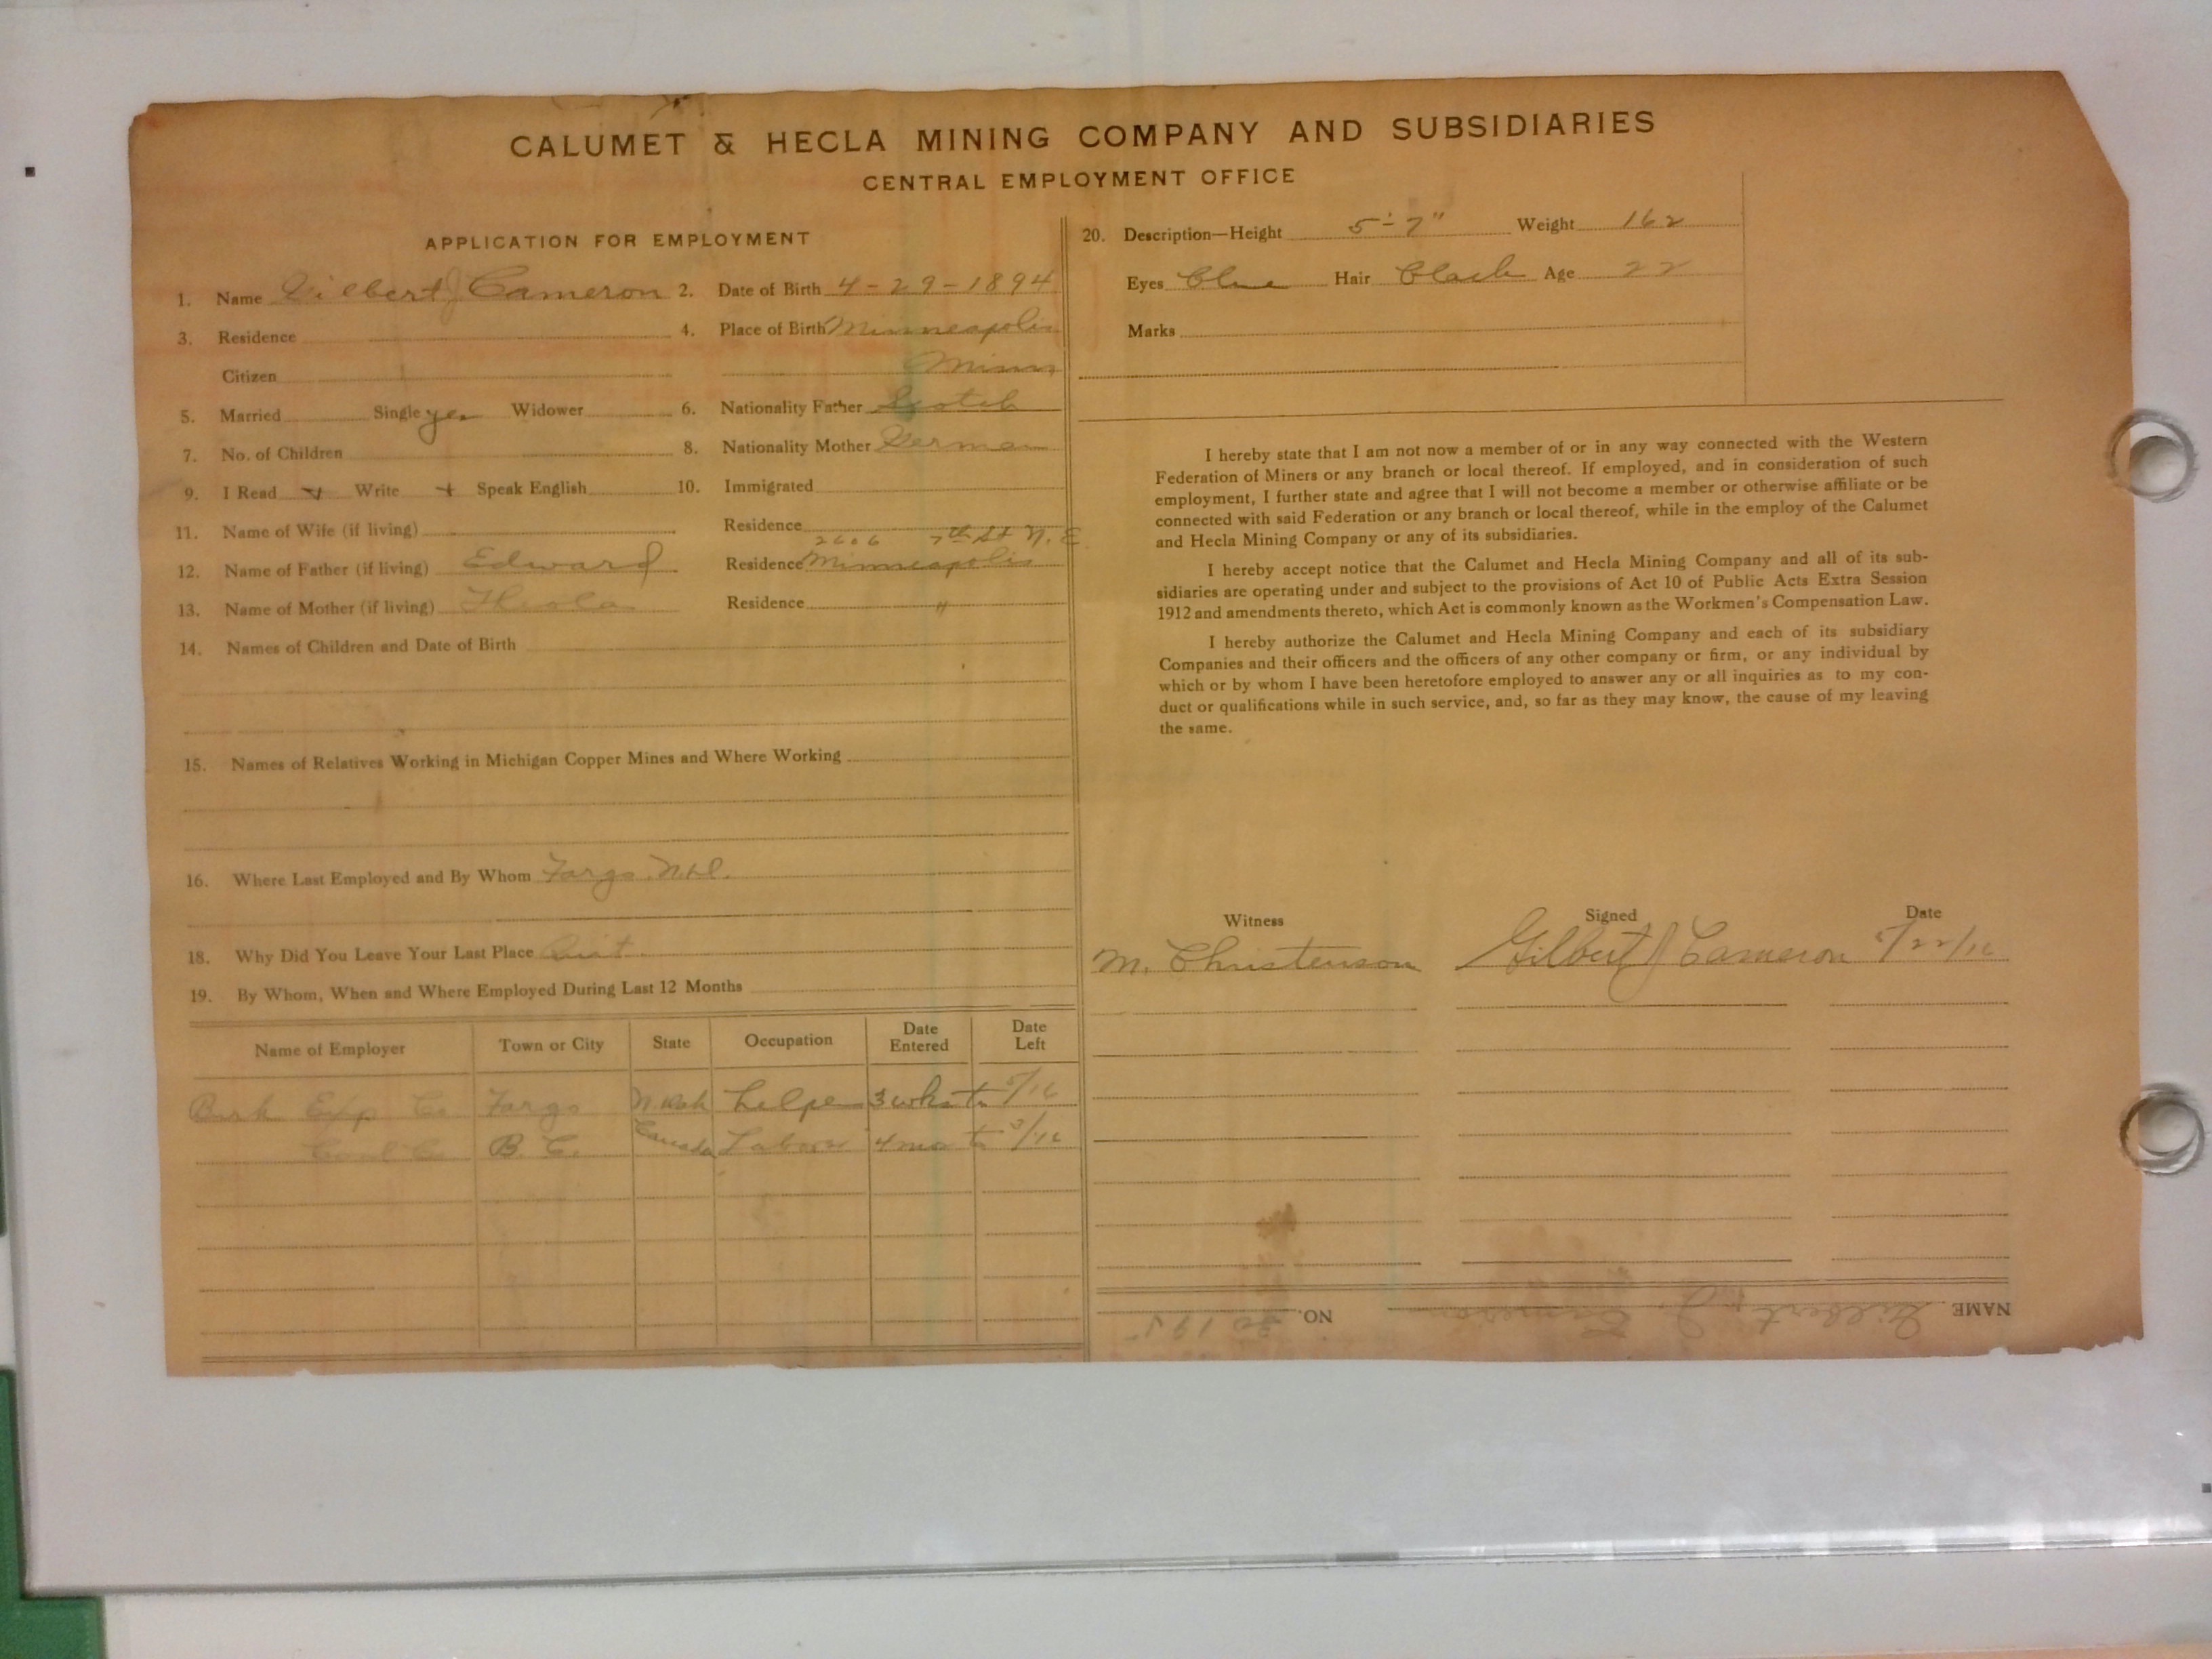 CALUMET & HECLA MINING COMPANY AND SUBSIDIARIES
CENTRAL EMPLOYMENT OFFICE
APPLICATION FOR EMPLOYMENT
1. Name Gilbert J Cameron 2. Date of Birth 4-29-1894
3. Residence 4. Place of Birth Minneapolis
Citizen Minn
5. Married Single yes Widower 6. Nationality Father Scotch
7. No. of Children 8. Nationality Mother German
9. I Read Write Speak English 10. Immigrated
11. Name of Wife (if living) Residence
2606 7th St N.E
12. Name of Father (if living) Edward Residence Minneapolis
13. Name of Mother (if living) Residence "
14. Names of Children and Date of Birth
15. Names of Relatives Working in Michigan Copper Mines and Where Working
16. Where Last Employed and By Whom Fargo N.D.
18. Why Did You Leave Your Last Place
19. By Whom, When and Where Employed During Last 12 Months
Name of Employer Town or City State Occupation Date Entered Date Left
Exp Co Fargo N. Dak helper 3 wks to 5/16
Coal Co B. C. Canada Labor 4 mo to 3/16
20. Description—Height 5'-7" Weight 162
Eyes Blue Hair Black Age 22
Marks
I hereby state that I am not now a member of or in any way connected with the Western
Federation of Miners or any branch or local thereof. If employed, and in consideration of such
employment, I further state and agree that I will not become a member or otherwise affiliate or be
connected with said Federation or any branch or local thereof, while in the employ of the Calumet
and Hecla Mining Company or any of its subsidiaries.
I hereby accept notice that the Calumet and Hecla Mining Company and all of its sub-
sidiaries are operating under and subject to the provisions of Act 10 of Public Acts Extra Session
1912 and amendments thereto, which Act is commonly known as the Workmen's Compensation Law.
I hereby authorize the Calumet and Hecla Mining Company and each of its subsidiary
Companies and their officers and the officers of any other company or firm, or any individual by
which or by whom I have been heretofore employed to answer any or all inquiries as to my con-
duct or qualifications while in such service, and, so far as they may know, the cause of my leaving
the same.
Witness Signed Date
M. Christenson Gilbert J Cameron 5/22/16
NAME Gilbert J. Cameron NO.